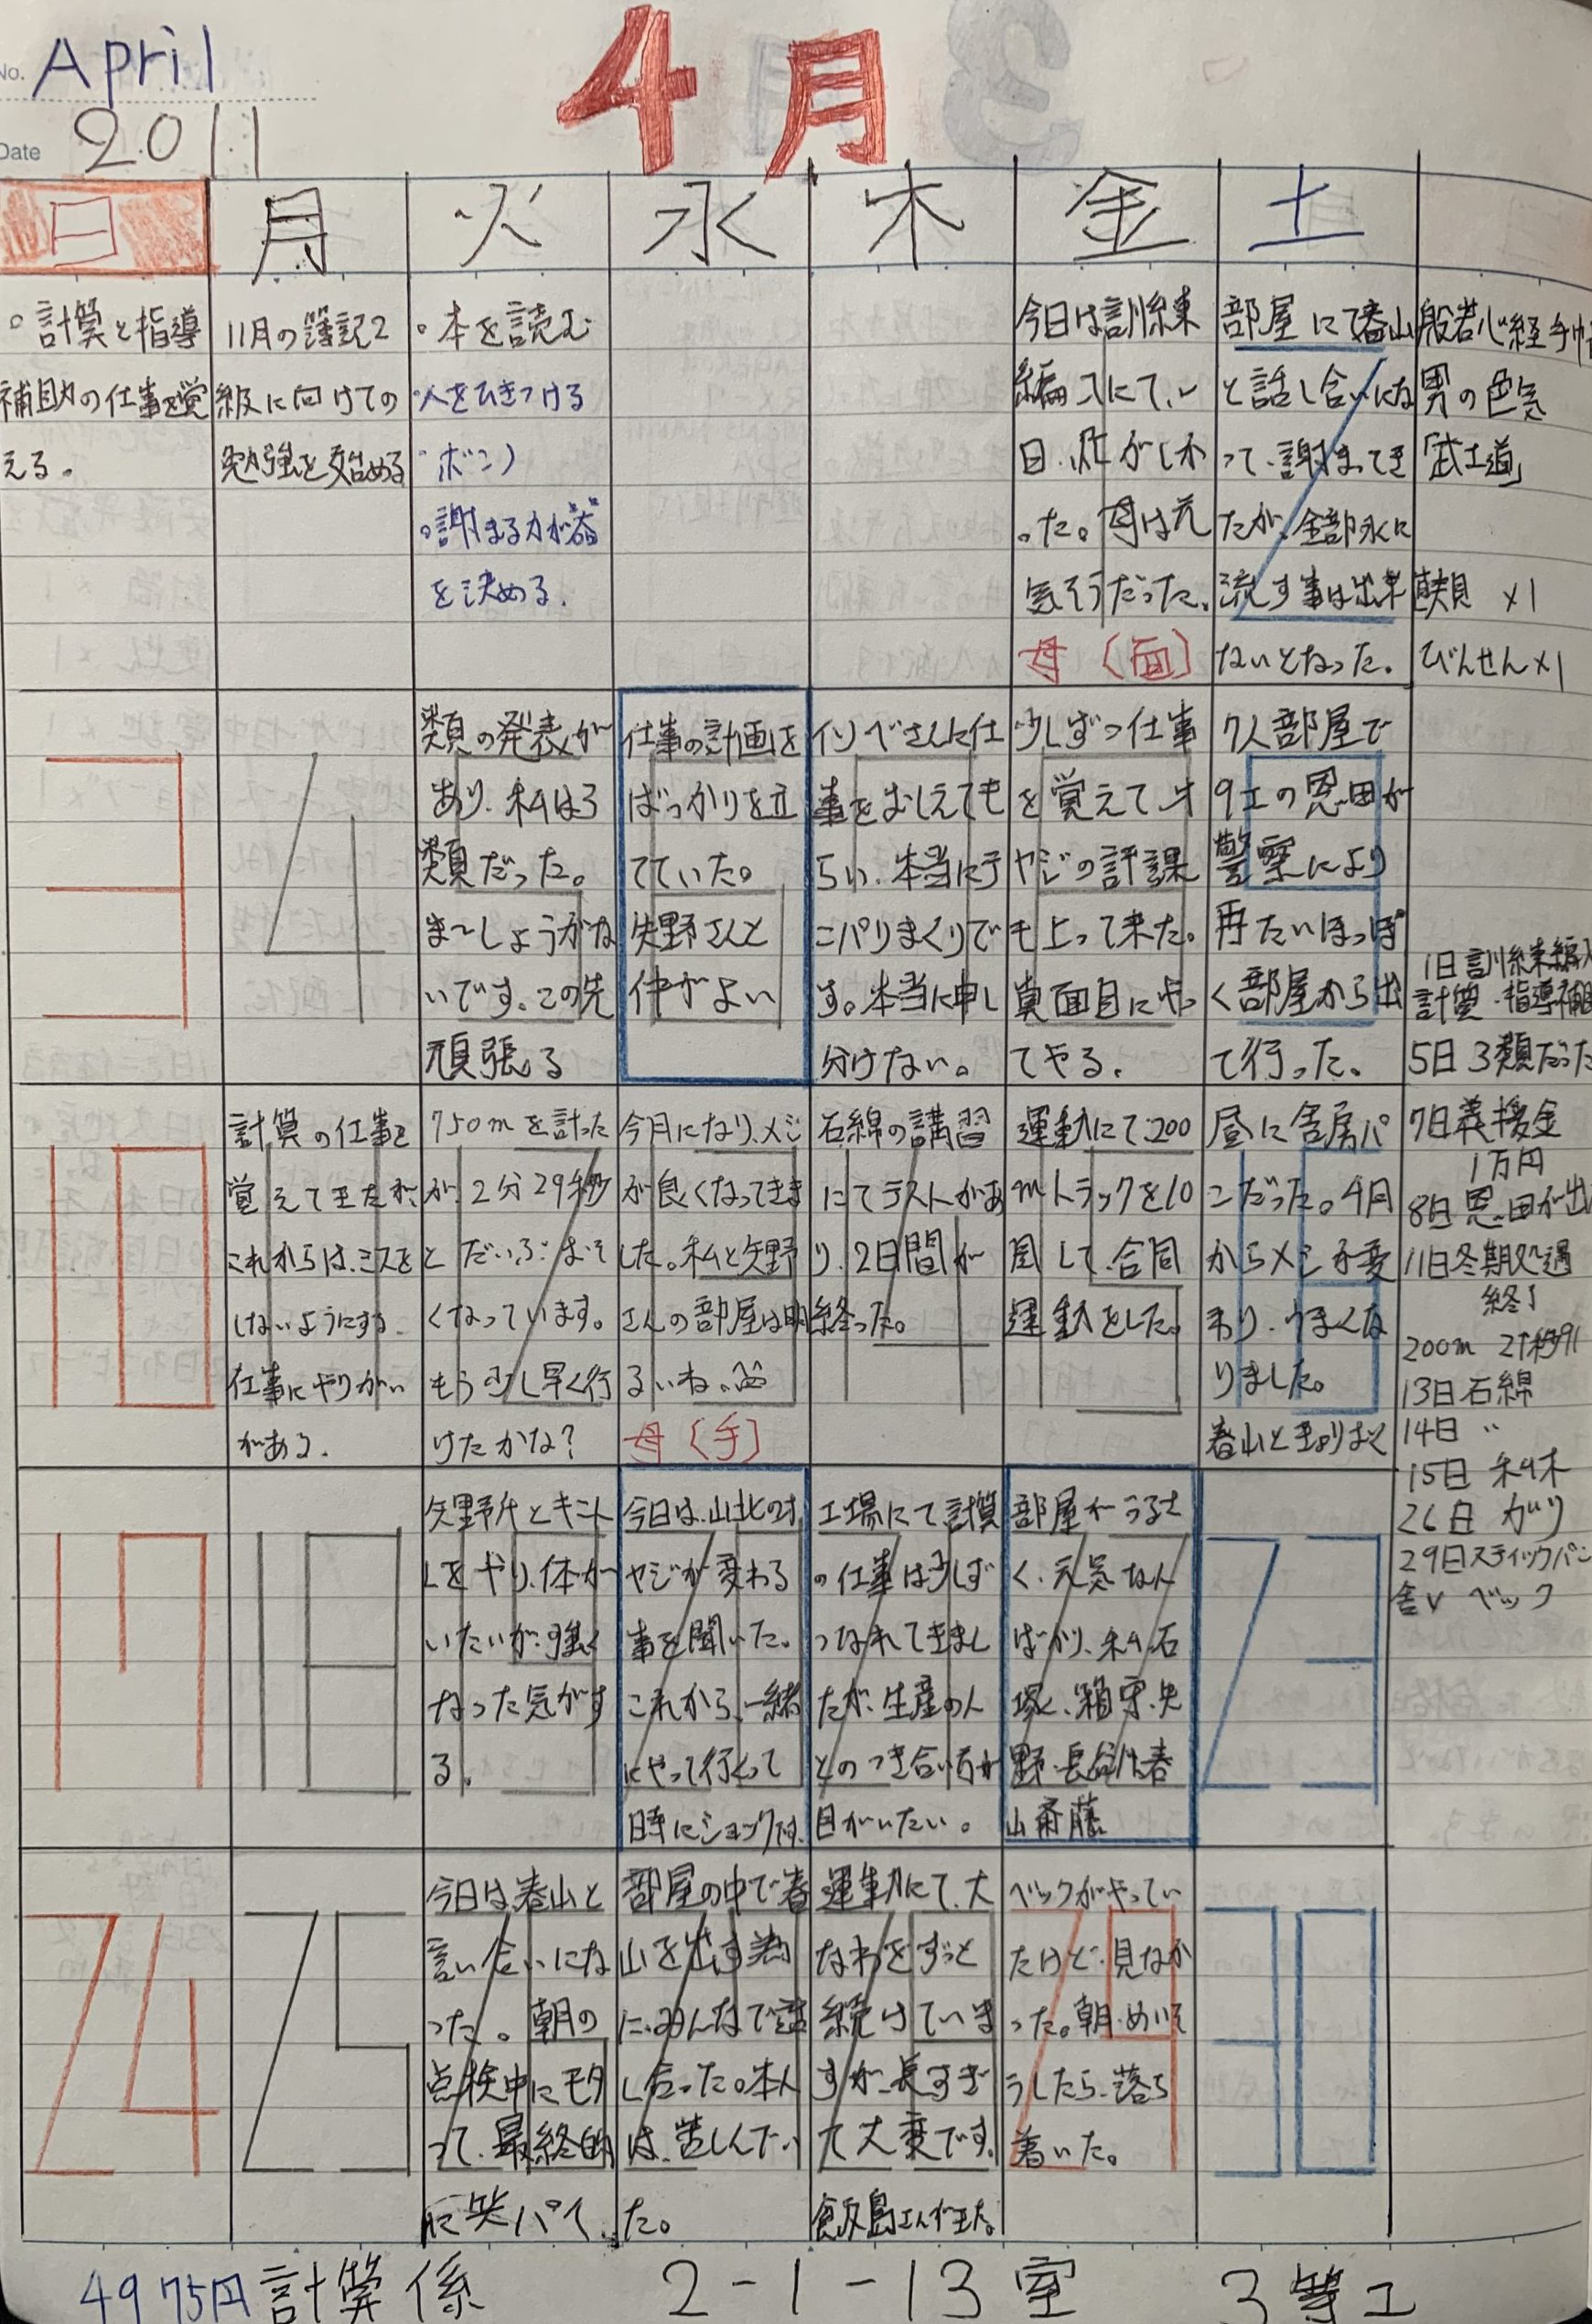 No. April
4月
Date 2011
日 月 火 水 木 金 土
。計算と指導
補助の仕事を覚
える。
11月の簿記2
級に向けての
勉強を始める
。本を読む
人をひきつける
。謝まる力が器
を決める.
今日は訓練
った。母は元
気そうだった.
母(面)
部屋にて春山
と話し合いにな
って、謝まってき
たが、全部水に
流す事は出来
ないとなった.
般若心経手帖
男の色気
「武士道」
びんせん×1
3
4
類の発表が
あり、私は3
類だった。
ま〜しょうがな
いです。この先
頑張る
仕事の計画を
ばっかりを立
てていた。
矢野さんと
仲がよい
イソベさんに仕
事をおしえても
らい、本当にテ
ンパりまくりで
す。本当に申し
分けない。
少しずつ仕事
を覚えて、オ
ヤジの評課
も上って来た。
真面目にやっ
てやる.
7人部屋で
9工の恩田が
警察により
再たいほっぽ
く部屋から出
て行った.
1日訓練編入
計算・指導補助
5日3類だった
10
計算の仕事を
覚えてきたが、
これからは、ミスを
しないようにする.
仕事にやりがい
がある.
750mを計った
が、2分29秒
と だいぶおそ
くなっています。
もう少し早く行
けたかな?
今月になり、メシ
が良くなってきま
した。私と矢野
さんの部屋は明
るいね。
母(手)
石綿の講習
にてテストがあ
り、2日間が
終った。
運動にて、200
mトラックを10
周して、合同
運動をした。
昼に舎房パ
こだった。4月
からメシが変
わり、うまくな
りました。
7日義援金
1万円
8日恩田が出
11日冬期処遇
終了
200m
13日石綿
14日 〃
15日
26日 ガリ
29日スティックパン
舎V ベック
17
18
いたいが、強く
なった気がす
る.
今日は、山北のオ
ヤジが変わる
事を聞いた。
これから、一緒
にやって行くって
時にショックです.
工場にて計算
の仕事は少しず
つなれてきまし
たが、生産の人
とのつき合い方が
目がいたい。
部屋がうるさ
く、元気なん
ばかり、私、石
塚、箱守、矢
野、長谷川、春
山斎藤
23
24
25
今日は春山と
言い合いにな
った。朝の
点検中にモタ
って、最終的
部屋の中で春
山を出す為
に、みんなで話
し合った。本人
は、苦しんでい
た。
運動にて、大
なわをずっと
続けていま
すが、長すぎ
て大変です。
飯島さんが来た。
ベックがやってい
たけど、見なか
った。朝、めいそ
うしたら、落ち
着いた。
30
4975円 計算係 2-1-13室 3等工